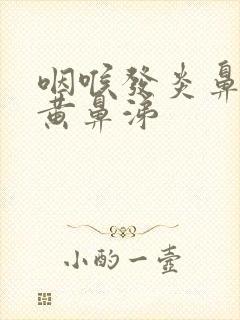 咽喉發炎鼻
黄鼻涕
小酌一壺